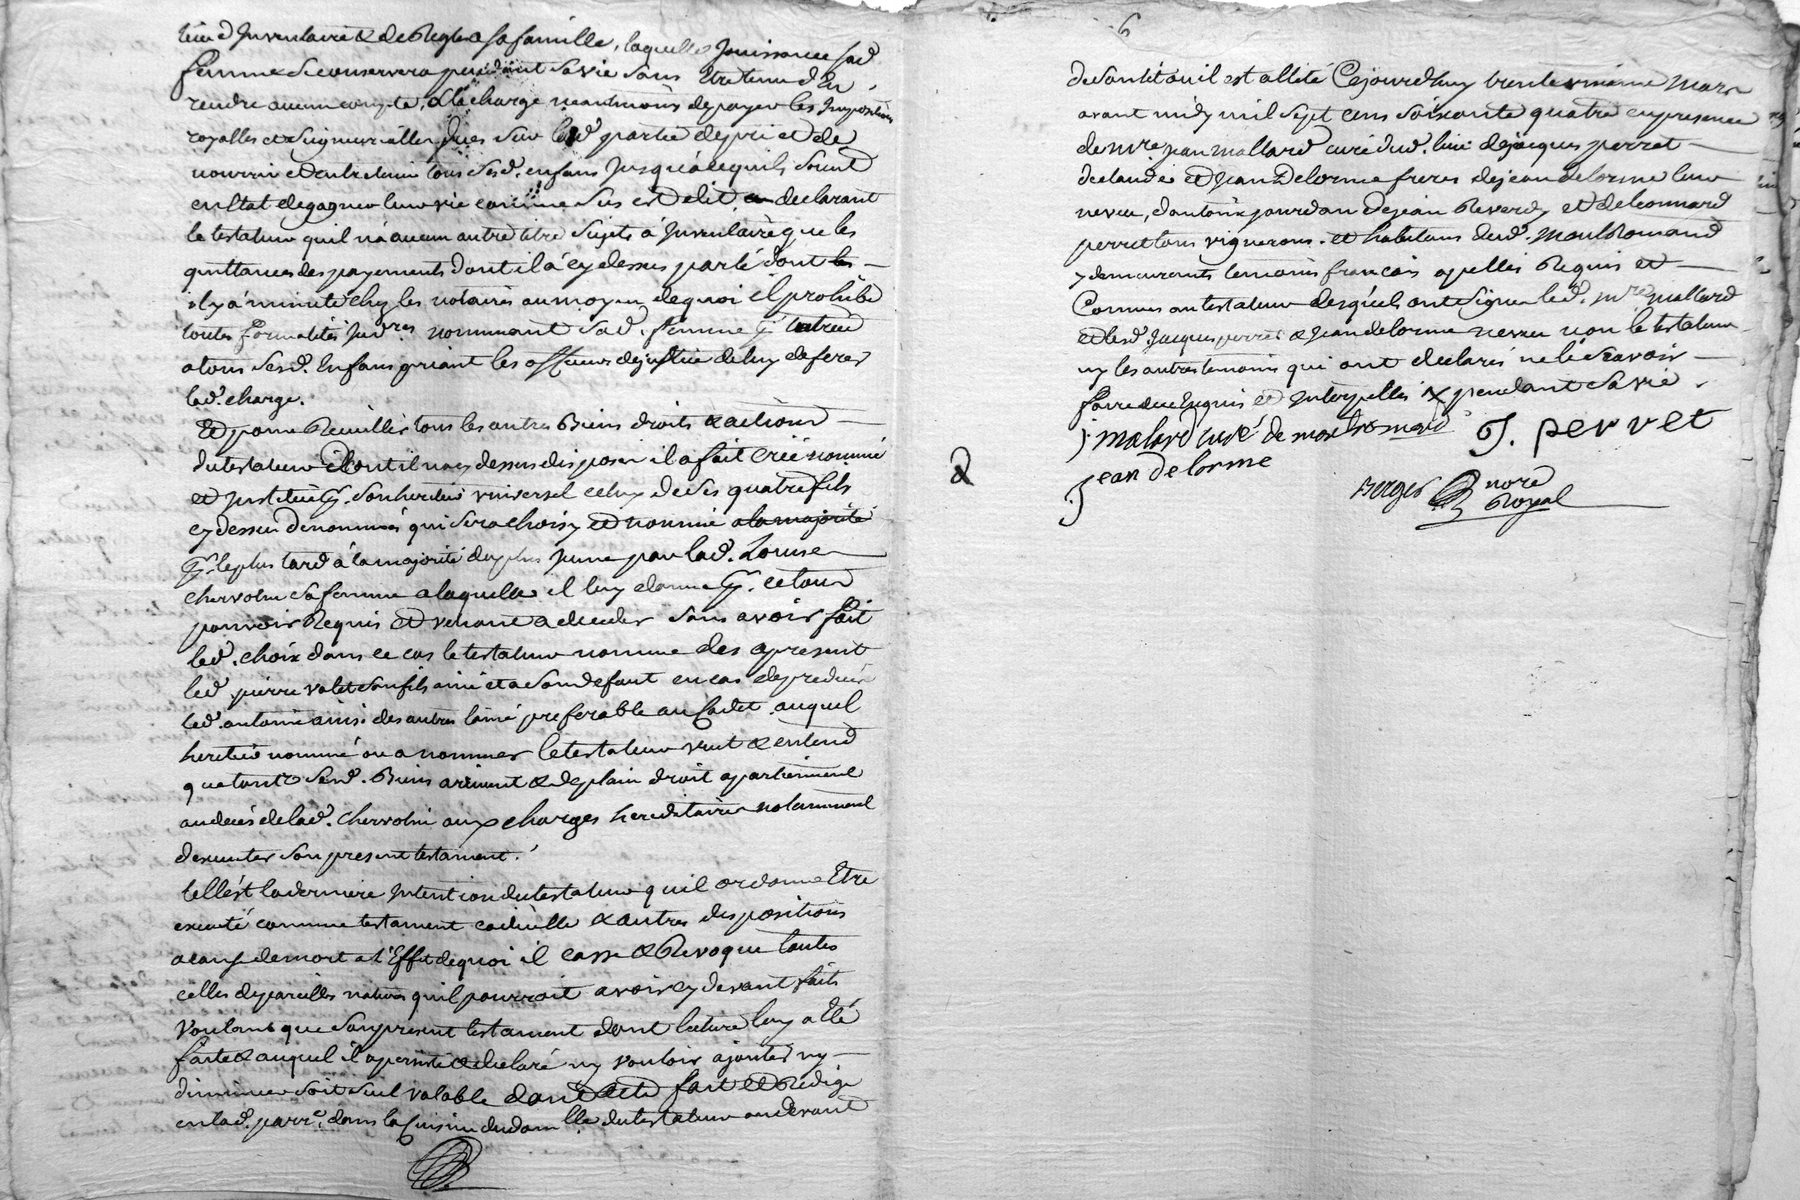 lieu d'Inventaire & de Regle a sa famille, laquelle Jouissance sad.
femme Seconservera pendant savie sans Etre tenue d'En
rendre aucun compte, a la charge neantmoins depayer les Impositions
royalles et Seigneurialles dues sur lad. partie depré et de
nourrir et entretenir tous sesd. enfans Jusquàcequils Soient
en Etat degagner leur vie comme sus est dit, declarant
le testateur quil n'a aucun autre titre Sujets à Inventaire que les
quittances des payements dont il a cy dessus parlé dont
il y a minute chez les notaires au moyen dequoi il prohibe
toutes formalités Jud.res nommant Sad. femme p.r tutrice
atous sesd. Enfans priant les officiers dejustice deluy deferer
lad. charge.
Et pour Receuillir tous les autres Biens droits & actions
dutestateur dont il n'a cy dessus disposé il a fait créé nommé
et Institué p.r son heritier universel celuy de ses quatre fils
cy dessus denommés qui sera choisy et nommé a la majorité
p.r leplus tard à la majorité duplus Jeune par lad. Louise
chervolin sa femme alaquelle il luy donne p.r cetour
pouvoir Requis et venant adeceder sans avoir fait
led. choix dans ce cas letestateur nomme des apresent
led. pierre valet son fils ainé et a son defaut en cas depredecés
led. antoine ainsi des autres l'ainé preferable au Cadet auquel
heritier nommé ou a nommer letestateur veut & entend
que tout sesd. Biens arivent & deplain droit apartiennent
audecès delad. chervolin aux charges hereditaires notamment
d'executer son present testament.
telle est laderniere Intention dutestateur quil ordonne Etre
executé comme testament codicille & autres dispositions
acause demort a l'Effet dequoi il casse & Revoque toutes
celles depareilles natures quil pourroit avoir cy devant faits
Voulant que son present testament dont lecture luy a Eté
faite & auquel il a persisté & declaré ny vouloir ajouter ny
diminuer soit seul valable dont acte fait et Redigé
en lad. parr.e dans la Cuisine dudom.lle dutestateur audevant
6
deson lit ou il est allité Cejourdhuy trente unieme Mars
avant midy mil Sept cens Soixante quatre en presence
de m.re Jean Mallard curé dud. lieu dejacques perret
declaude et Jean Delorme freres dejean delorme leur
neveu, d'antoine jourdan dejean Reverdy et deleonnard
perret tous vignerons et habitans dud. Montromand
y demeurants temoins francois apellés Requis et
Connus au testateur desquels ont Signé led. m.re Mallard
et led. Jacques perret & Jean delorme neveu non letestateur
ny les autres temoins qui ont declarés ne lé scavoir
faire dece Enquis et Interpellés pendant savie
j. malard curé de montromand J. perret
jean delorme
Berger no.re
Royal